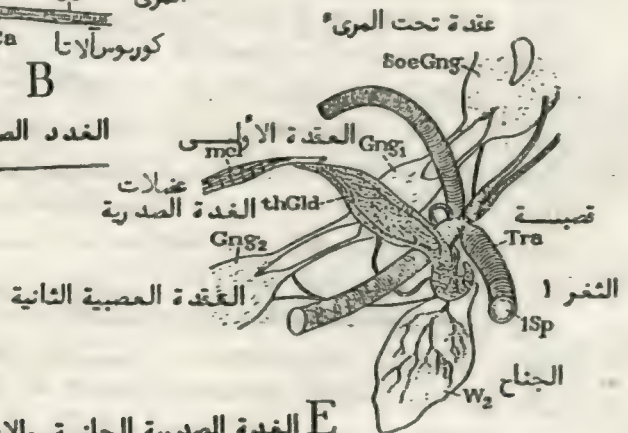 المرى
كوربوس آلاتا
B
الغدد
عقدة تحت المرىء
SoeGng
العقدة الأولى
Gng₁
mcl
عضلات
الغدة الصدرية
thGld
Gng₂
العقدة العصبية الثانية
قصيبة
Tra
الثغر ١
1Sp
الجناح
W₂
E
الغدة الصدرية